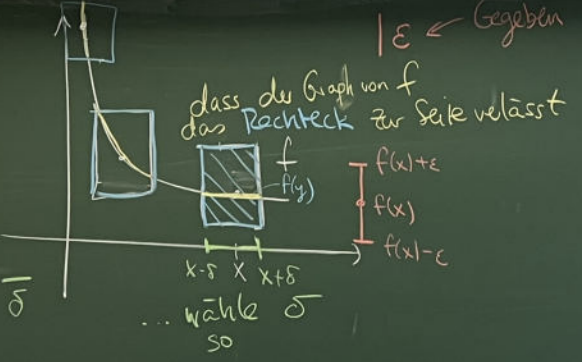 ε ← Gegeben
dass der Graph von f
das Rechteck zur Seite velässt
f
f(y)
f(x)+ε
f(x)
f(x)-ε
x-δ x x+δ
δ
... wähle δ
so